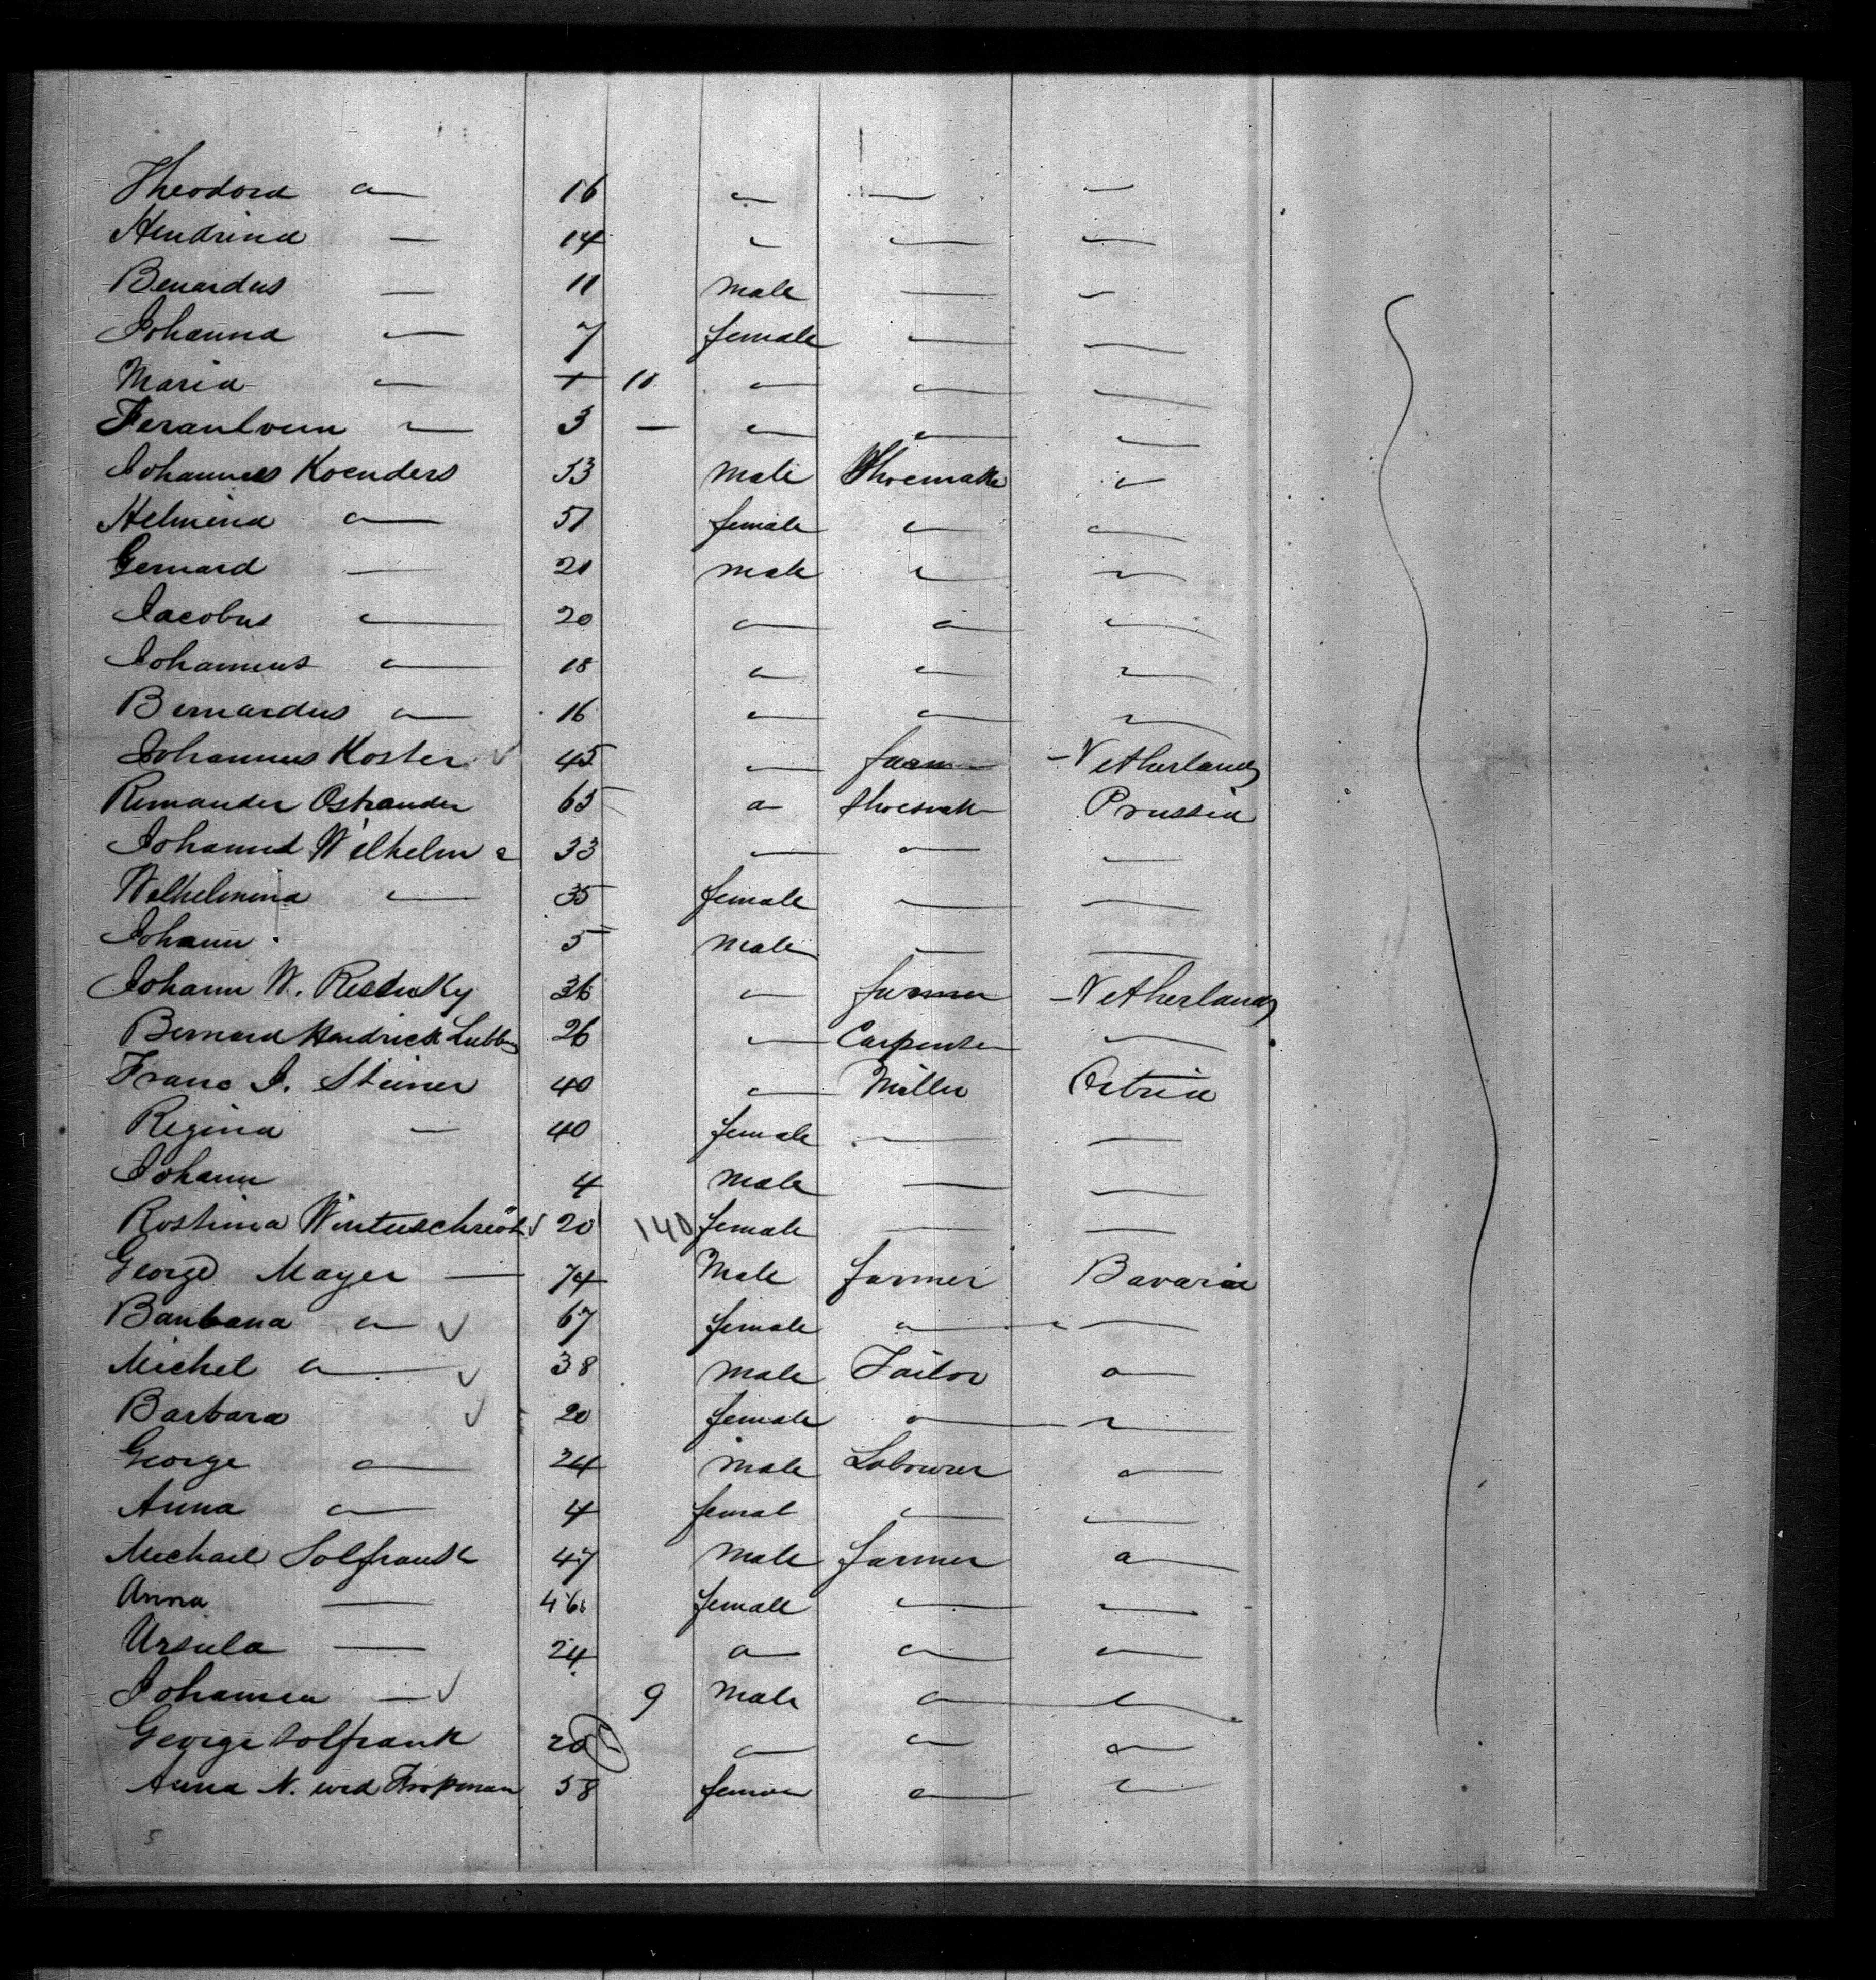 Theodora " 16 " — —
Hendrina — 14 " — —
Benardus — 11 male — —
Johanna — 7 female — —
Maria — 1 11 " " —
3 — " " "
Johannes Koenders 53 male Shoemake "
Helmina " 51 female " "
Gernard — 21 male " "
Jacobus " 20 " " "
Johannus " 18 " " "
Bernardus " 16 " " "
Johannus Koster 45 " farm Netherlands
Remander Ostrander 65 " shoemak Prussia
Johannes Wilhelm " 33 " " —
Wilhelmina " 35 female — —
Johann 5 male — —
Johann W. 36 " farmer Netherlands
Bernard Hendrick Lubbers 26 " Carpenter "
Franc J. Steiner 40 " Miller Ostria
Regina — 40 female — —
Johann 4 male — —
Rosthina 20 140 female — —
George Mayer — 74 Male farmer Bavaria
Banbana " 67 female " "
Michel " 38 male Tailor "
Barbara 20 female " "
George " 24 male Labourer "
Anna " 4 femal " "
Michael Solfrank 47 male farmer "
Anna — 46 female " "
Ursula — 24 " " "
Johannen — 9 male " "
George Solfrank 20 " " "
Anna N. 58 " "
5